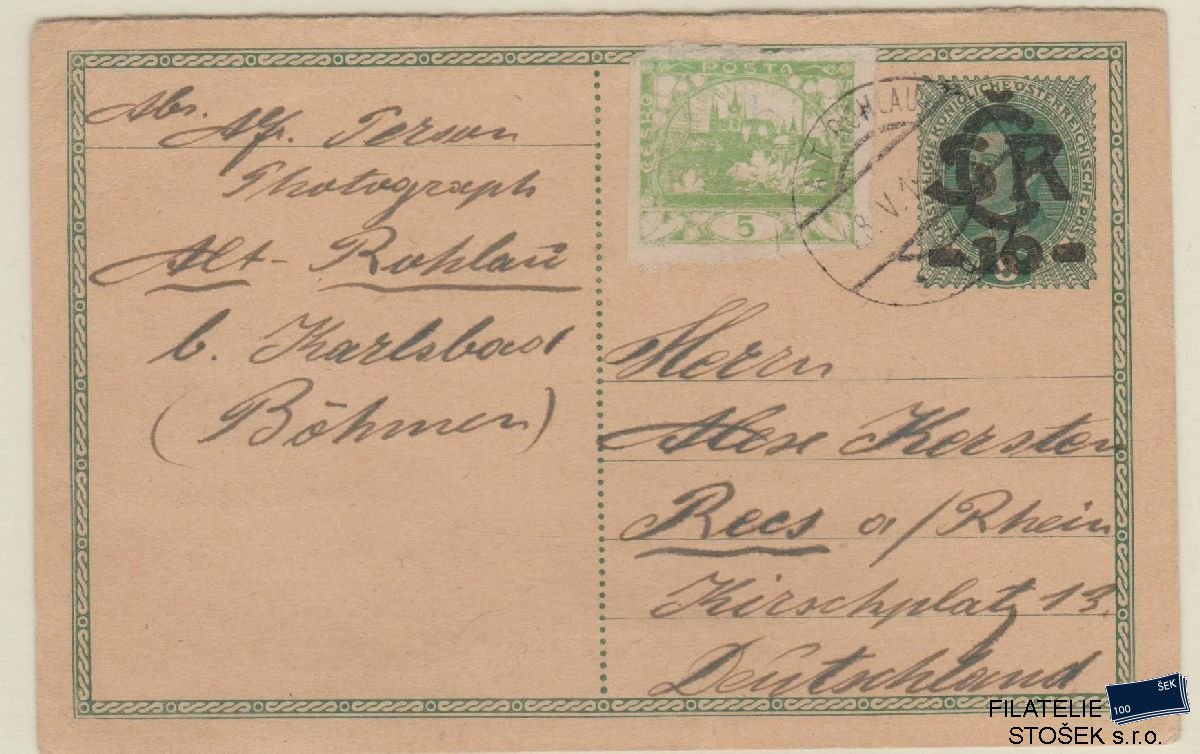 Abs. Alf. Person
Photograph
Alt-Rohlau
b. Karlsbad
(Böhmen)
POŠTA
ČESKO
5
ROHLAU
8. V.
KÖNIGLICHE ÖSTERREICHISCHE POST
ČSR
-10-
8
Herrn
Alex Kersten
Rees a/Rhein
Kirschplatz 13.
Deutschland
FILATELIE
STOŠEK s.r.o.
100
ŠEK